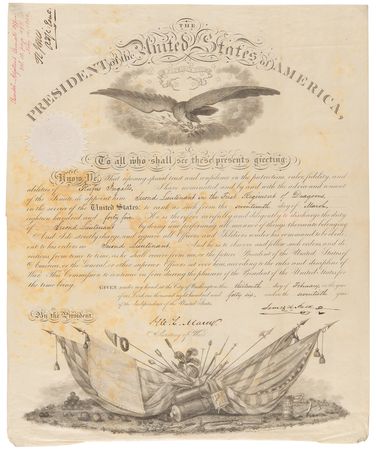 THE
PRESIDENT of the United States of AMERICA,
To all who shall see these presents greeting:
Know Ye, That reposing special trust and confidence in the patriotism, valor, fidelity, and
abilities of Rufus Ingalls, I have nominated, and by and with the advice and consent
of the Senate do appoint him Second Lieutenant in the First Regiment of Dragoons
in the service of the United States: to rank as such from the day of March,
eighteen hundred and forty five. He is therefore carefully and diligently to discharge the duty
of Second Lieutenant by doing and performing all manner of things thereunto belonging.
And I do strictly charge, and require all Officers and Soldiers under his command to be obedi-
ent to his orders as Second Lieutenant. And he is to observe and follow such orders, and di-
rections from time to time, as he shall receive from me, or the future President of the United States of
America, or the General or other superior Officers set over him, according to the rules and discipline of
War. This Commission to continue in force during the pleasure of the President of the United States, for
the time being.
GIVEN under my hand at the City of Washington, this thirteenth day of February in the year
of our Lord one thousand eight hundred and forty six, and in the seventieth year
of the Independence of the United States.
By the President,
James K. Polk
W. L. Marcy
Secretary of War.